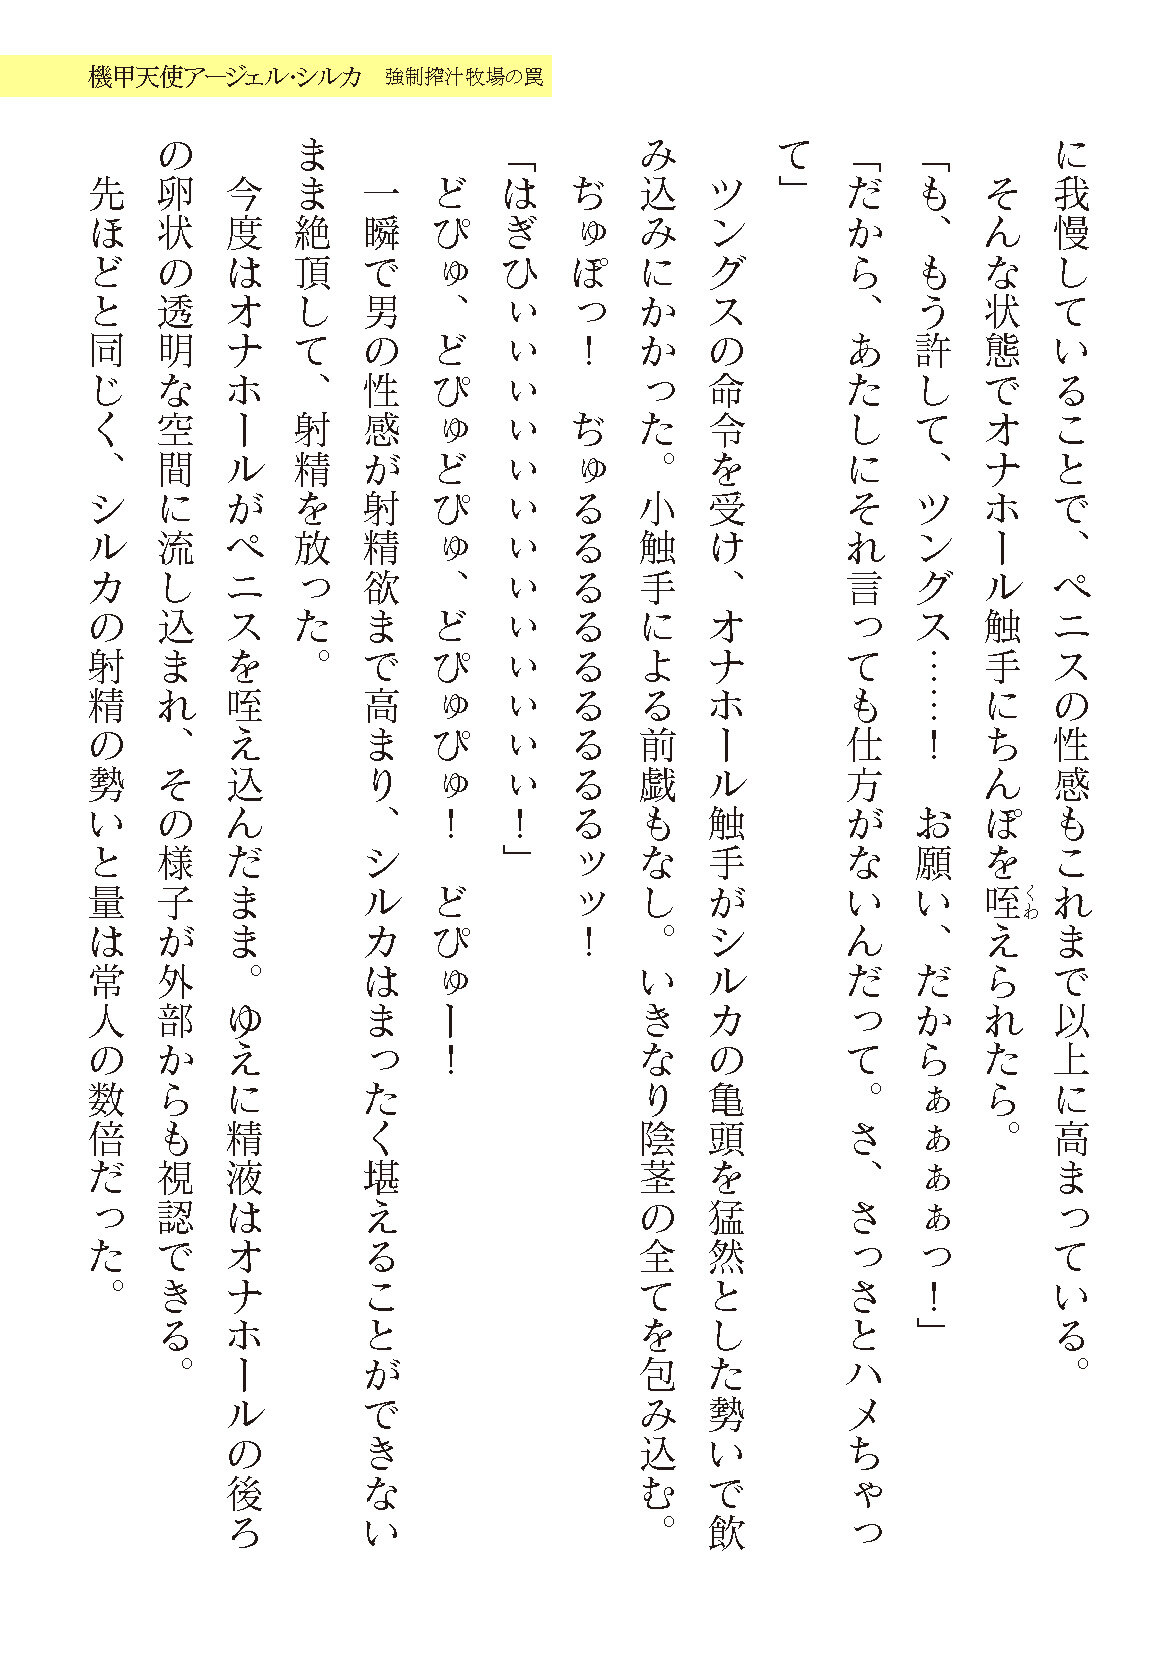 機甲天使アージェル・シルカ　強制搾汁牧場の罠
に我慢していることで、ペニスの性感もこれまで以上に高まっている。
　そんな状態でオナホール触手にちんぽを咥（くわ）えられたら。
「も、もう許して、ツングス……！　お願い、だからぁぁぁぁっ！」
「だから、あたしにそれ言っても仕方がないんだって。さ、さっさとハメちゃっ
て」
　ツングスの命令を受け、オナホール触手がシルカの亀頭を猛然とした勢いで飲
み込みにかかった。小触手による前戯もなし。いきなり陰茎の全てを包み込む。
　ぢゅぽっ！　ぢゅるるるるるるるるるッッ！
「はぎひぃぃぃぃぃぃぃぃぃぃぃぃぃ！」
　どぴゅ、どぴゅどぴゅ、どぴゅぴゅ！　どぴゅー！
　一瞬で男の性感が射精欲まで高まり、シルカはまったく堪えることができない
まま絶頂して、射精を放った。
　今度はオナホールがペニスを咥え込んだまま。ゆえに精液はオナホールの後ろ
の卵状の透明な空間に流し込まれ、その様子が外部からも視認できる。
　先ほどと同じく、シルカの射精の勢いと量は常人の数倍だった。